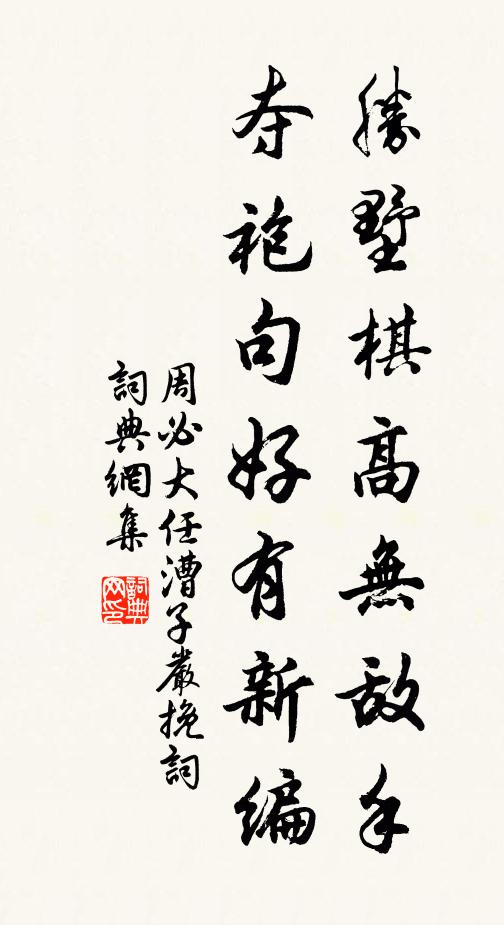 勝墅棋高無敌手
夺袍句好有新編
周必大任漕子嚴挽詞
詞典網集
詞典網印